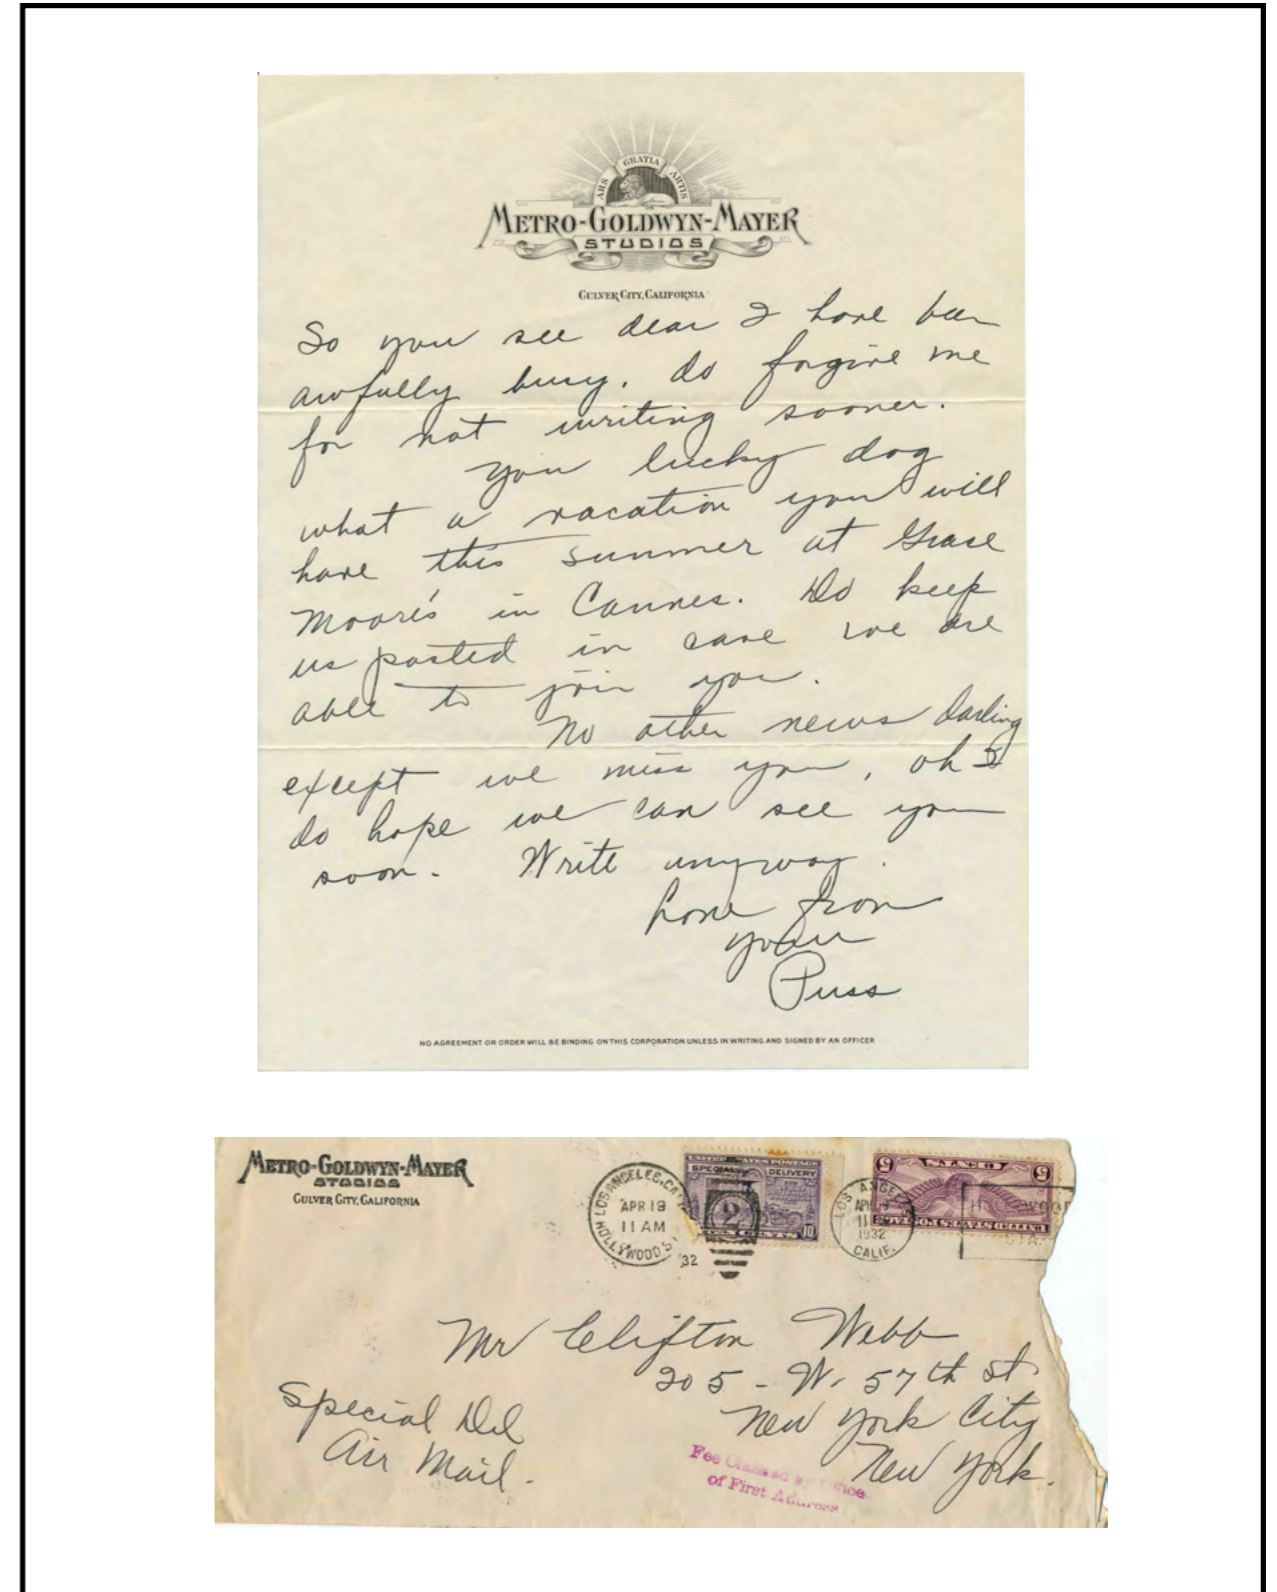 ARS GRATIA ARTIS
METRO-GOLDWYN-MAYER
STUDIOS
CULVER CITY, CALIFORNIA
So you see dear I have been
awfully busy. do forgive me
for not writing sooner.
You lucky dog
what a vacation you will
have this summer at Grace
Moore's in Cannes. Do keep
us posted in case we are
able to join you.
No other news darling
except we miss you, oh I
do hope we can see you
soon. Write anyway.
Love from
your
Puss
NO AGREEMENT OR ORDER WILL BE BINDING ON THIS CORPORATION UNLESS IN WRITING AND SIGNED BY AN OFFICER
METRO-GOLDWYN-MAYER
STUDIOS
CULVER CITY, CALIFORNIA
LOS ANGELES, CA
APR 19
11 AM
HOLLYWOOD ST
'32
UNITED STATES POSTAGE
SPECIAL DELIVERY
2
TEN CENTS 10
5 CENTS 5
UNITED STATES POSTAGE
LOS ANGELES
APR 19
11
1932
CALIF.
Mr Clifton Webb
205 - W. 57th St
New York City
New York.
Special Del
Air Mail.
Fee Claimed by Office
of First Address